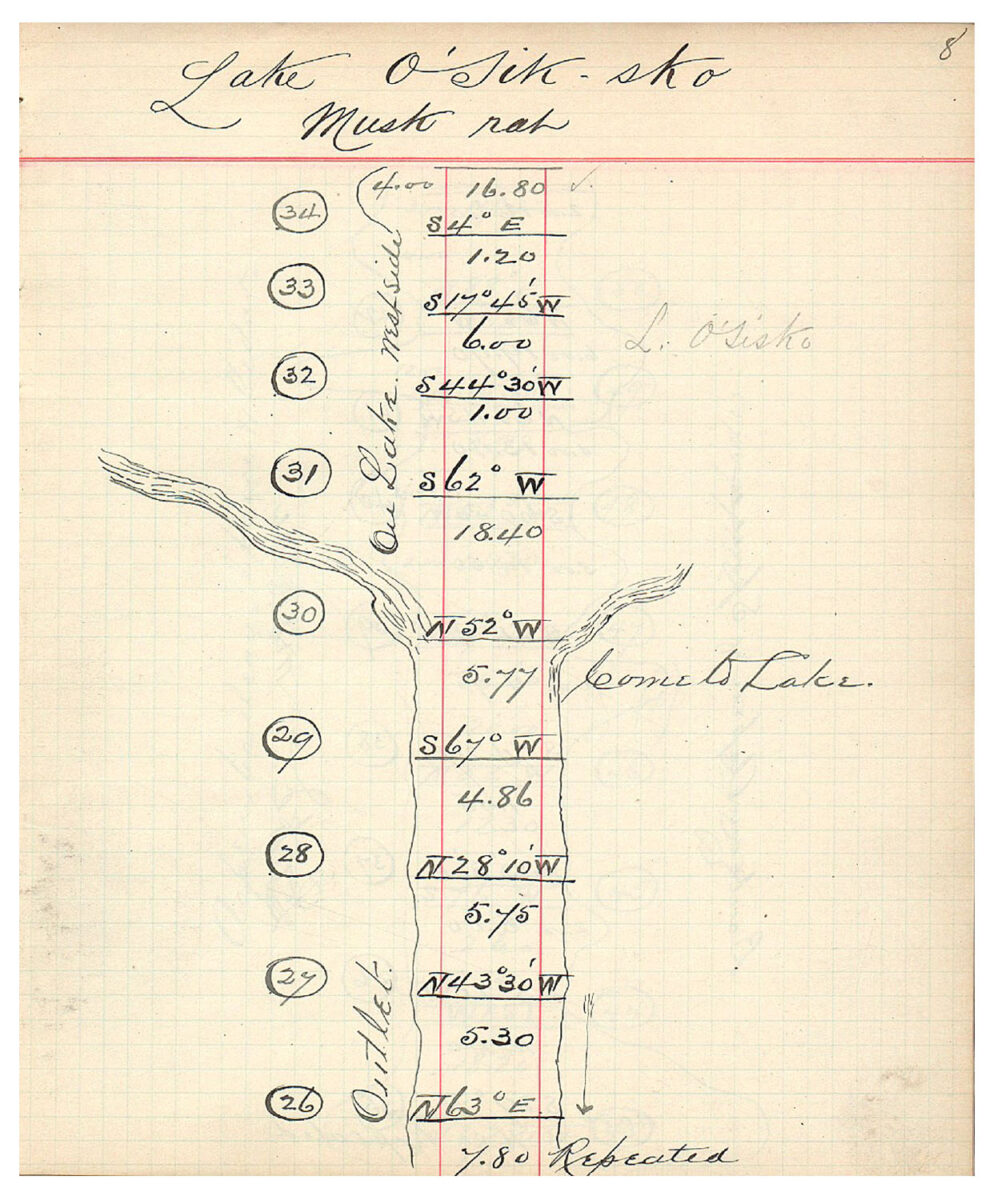 8
Lake O'Sik-sko
Musk rat
4.00 16.80 ✓.
34 S 4° E
1.20
33 S 17° 45' W
6.00
L. O'Sisko
32 S 44° 30' W
1.00
On Lake. West side
31 S 62° W
18.40
30 N 52° W
5.77 Come to Lake.
29 S 67° W
4.86
28 N 28° 10' W
5.75
27 N 43° 30' W
5.30
Outlet.
26 N 63° E
7.80 Repeated